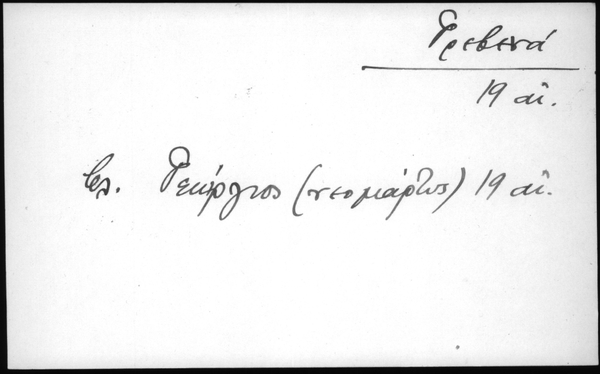 Γρεβενά
19 αἰ.
βλ. Γεώργιος (νεομάρτυς) 19 αἰ.